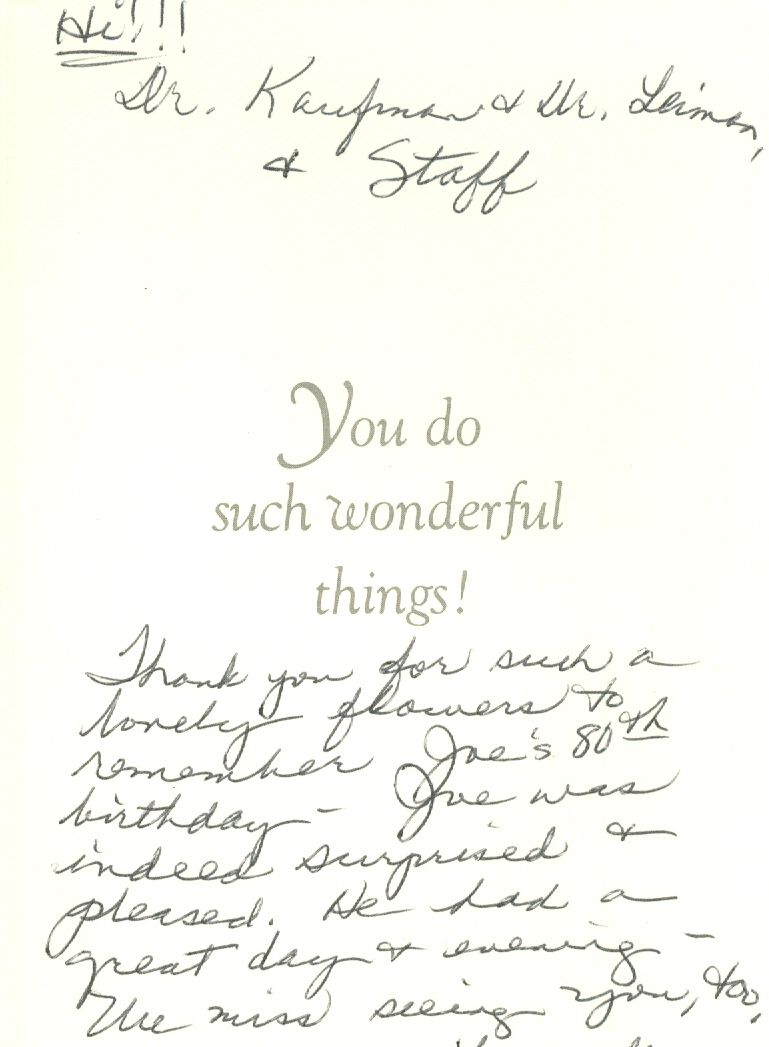 Hi!!!
Dr. Kaufman & Dr. Leiman,
& Staff
You do
such wonderful
things!
Thank you for such a
lovely flowers to
remember Joe's 80th
birthday - Joe was
indeed surprised &
pleased. He had a
great day & evening -
We miss seeing you, too,